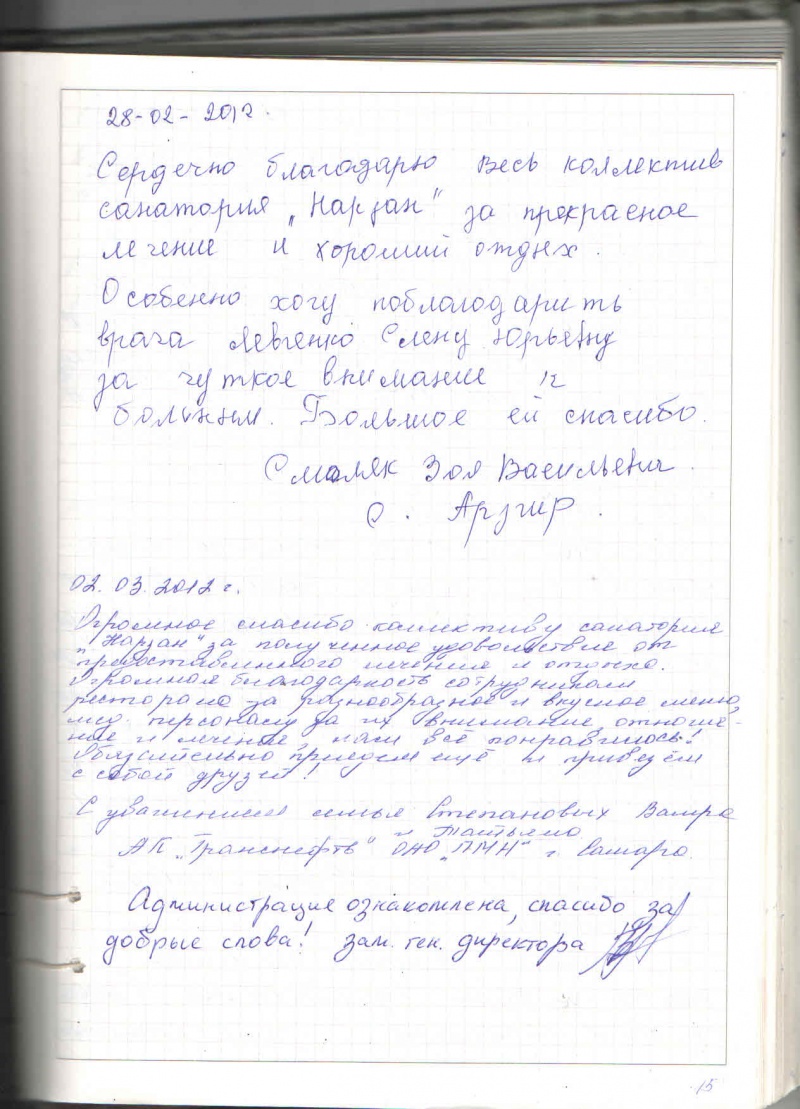 28-02-2012.
Сердечно благодарю весь коллектив
санатория „Нарзан" за прекрасное
лечение и хороший отдых.
Особенно хочу поблагодарить
врача Левченко Елену Юрьевну
за чуткое внимание к
больным. Большое ей спасибо.
Смоляк Зоя Васильевна
с. Арзгир.
02.03.2012 г.
Огромное спасибо коллективу санатория
„Нарзан" за полученное удовольствие от
предоставленного лечения и отдыха.
Огромная благодарность сотрудникам
ресторана за разнообразное и вкусное меню,
мед. персоналу за их внимание, отноше-
ние и лечение, нам всё понравилось!
Обязательно приедем ещё и привезём
с собой друзей!
С уважением семья Степановых
Татьяна
АК „Транснефть" ОАО „ПМН" г. Самара.
Администрация ознакомлена, спасибо за
добрые слова! зам. ген. директора
15